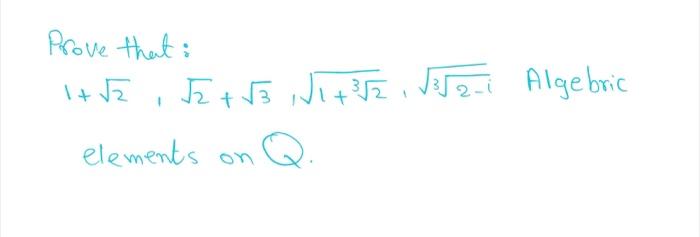 Prove that :
1 + √2 , √2 + √3 , √(1 + ³√2) , √(³√2 - i) Algebric
elements on Q.